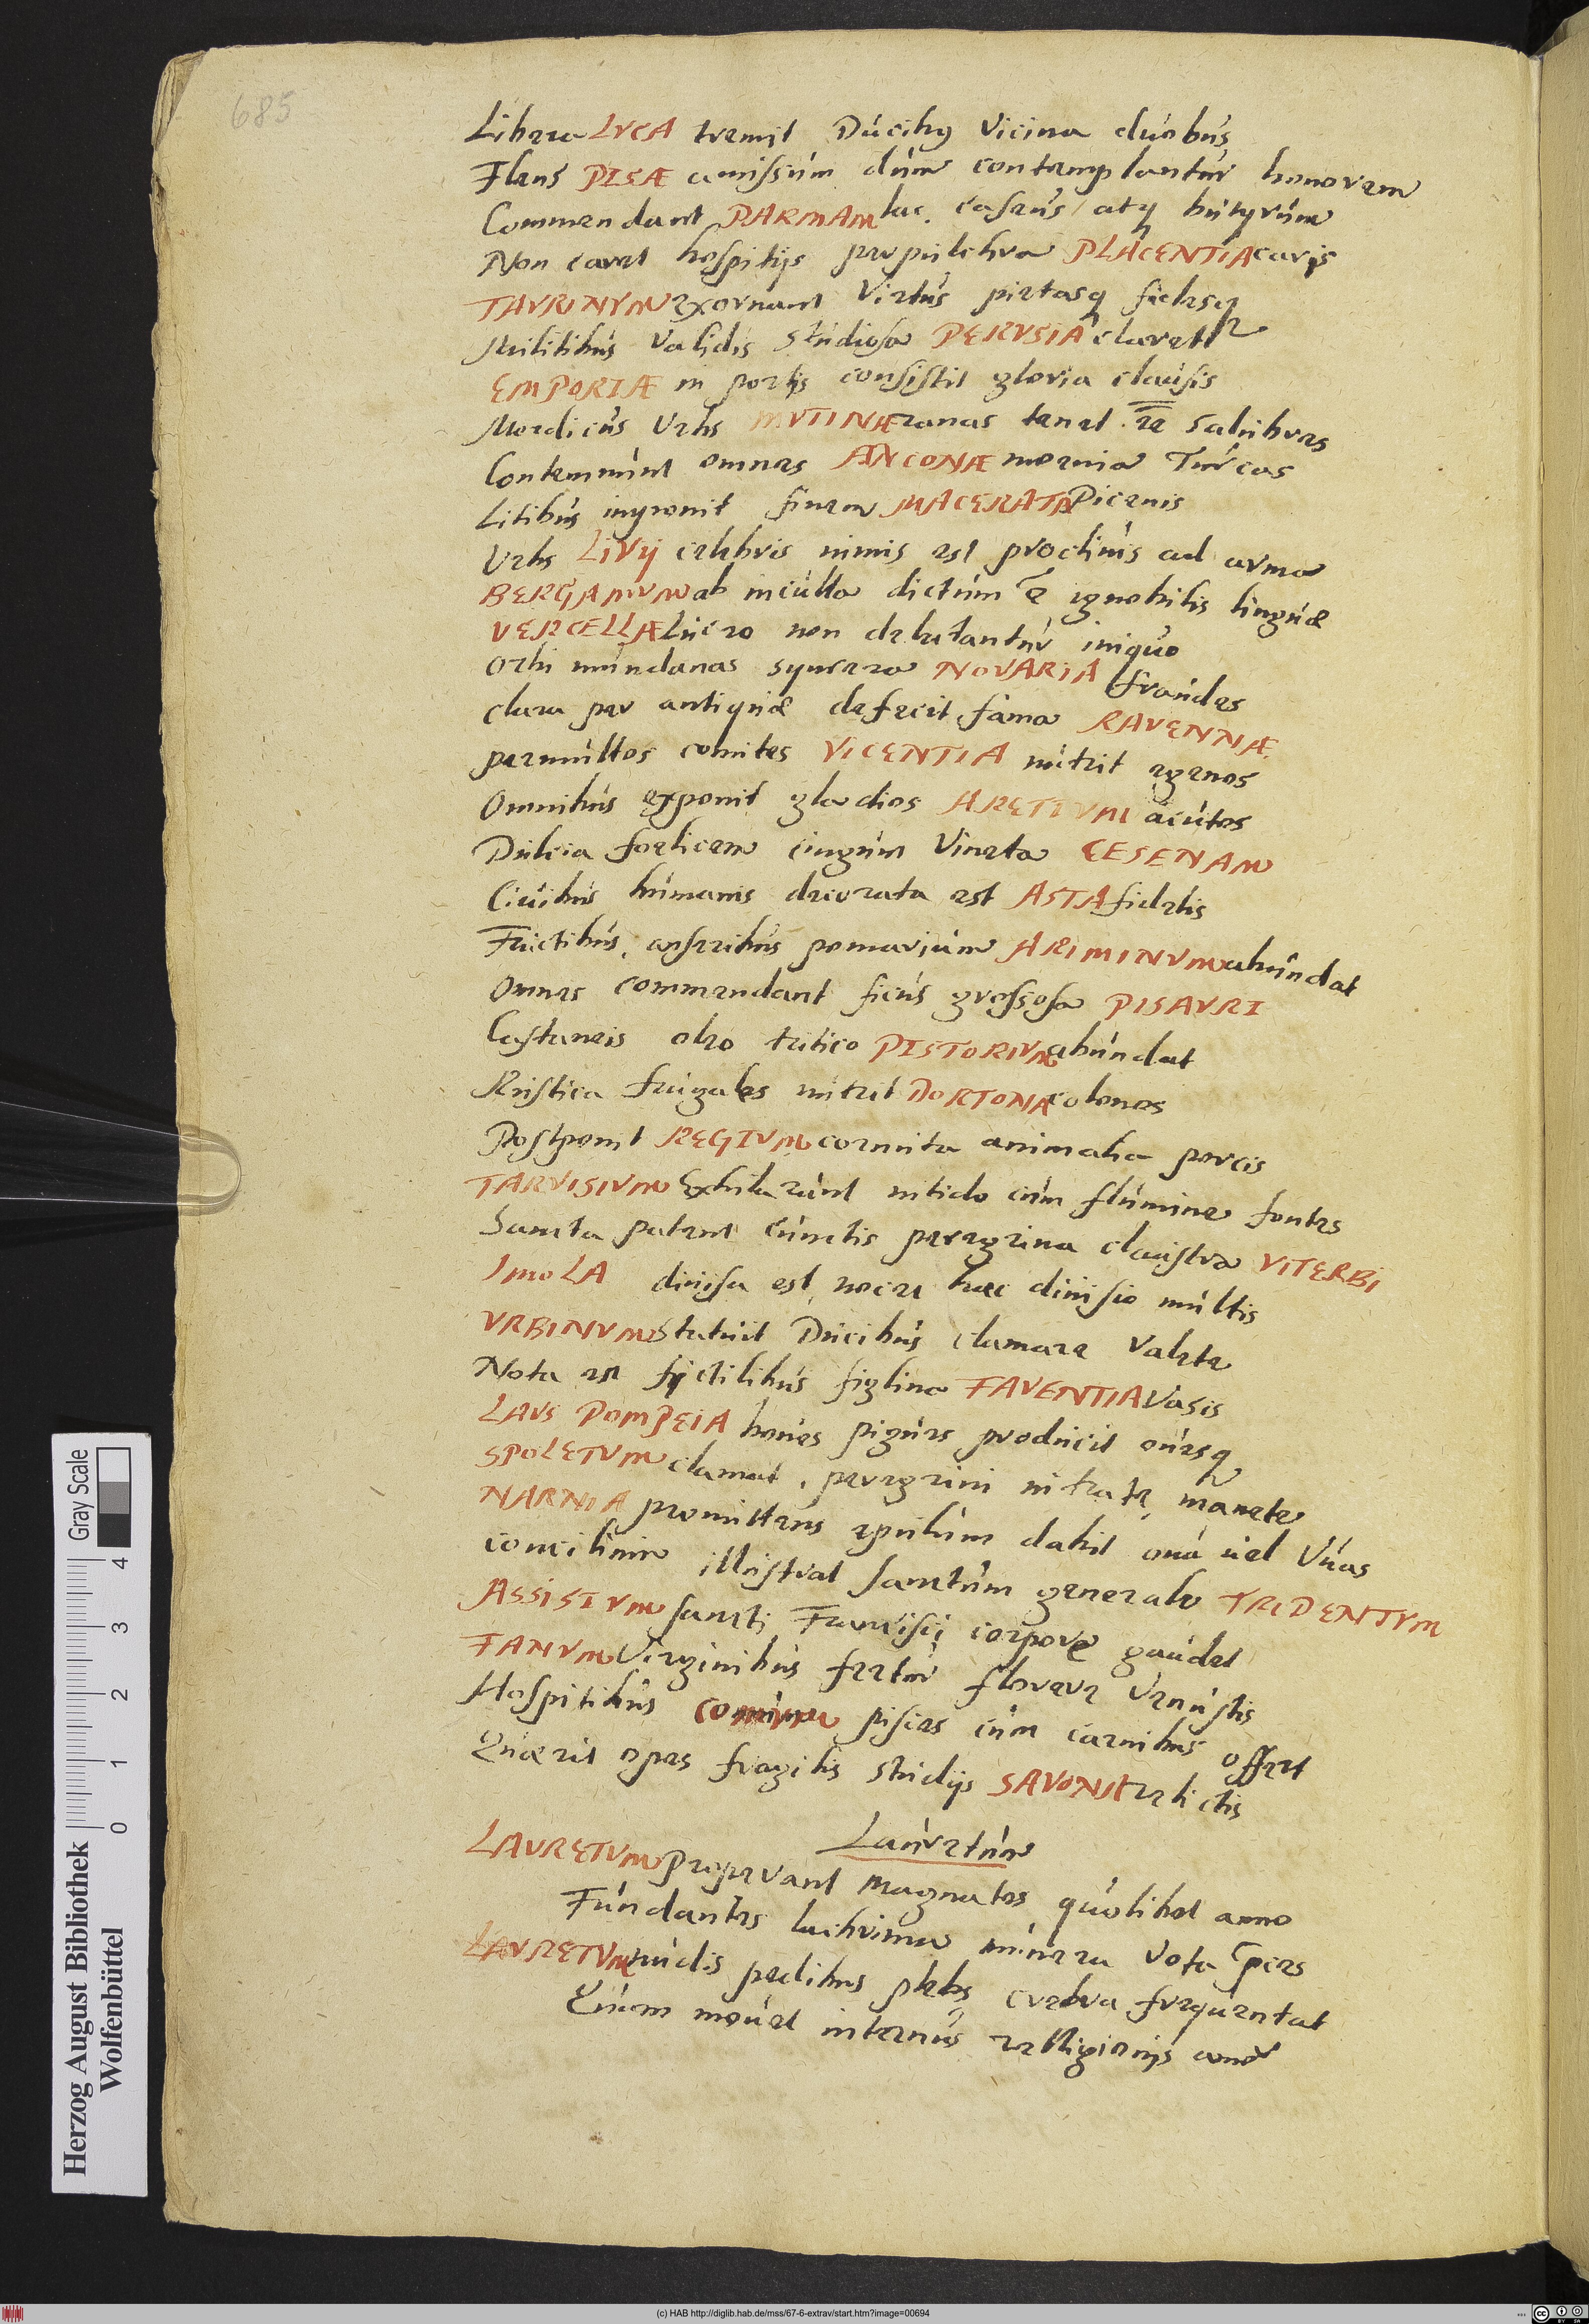 685
Libera LVCA tremit Ducibus vicina duobus
Flens PISÆ amissum dum contemplantur honorem
Commendant PARMAM lac, caseus atq butyrum
Non caret hospitijs perpulchra PLACENTIA caris
TAVRINVM exornant virtus pietasq fidesq
Militibus validis studiosa PERVSIA claret
EMPORIÆ in portis consistit gloria clausis
Medicus Urbs MVTINÆ ranas tenet re salubres
Contemnunt omnes ANCONÆ moenia Turcas
Litibus imponit finem MACERATA Picenis
Urbs LIVIJ celebris nimis est proclivis ad arma
BERGAMVM ab inculta dictum est ignobilis lingua
VERCELLÆ lucro non delectantur iniquo
Orbi mundanas syncera NOVARIA fraudes
Clara per antiquæ defecit fama RAVENNÆ
Permultos comites VICENTIA nutrit egenos
Omnibus exponit gladios ARETIVM acutos
Dulcia foelicem cingunt vineta CESENAM
Civibus humanis decorata est ASTA fidelis
Fructibus, anseribus pomarium ARIMINVM abundat
Omnes commendant ficus grossosa PISAVRI
Castaneis oleo tritico PISTORIVM abundat
Rustica frugales nutrit DORTONA colonos
Postponit REGIVM cornuta animalia porcis
TARVISIVM Exhilarant nitido cum flumine fontes
Sancta patent cunctis peregrina claustra VITERBI
IMOLA divisa est, nocet haec divisio multis
VRBINVM Statuit Ducibus clamare valete
Nota est fictilibus figlina FAVENTIA vasis
LAVS POMPEIA boves pigues producit ovesq
SPOLETVM clamat, peregrini intrate, manete
NARNIA promittens epulum dabit ova vel Uvas
Concilium illustrat sanctum generale TRIDENTVM
ASSISIVM sancti Francisci corpore gaudet
FANVM Virginibus fertur florere venustis
Hospitibus COMVM pisces cum carnibus offert
Quærit opes fragilis studijs SAVONA relictis
Lauretum
LAVRETVM properant magnates quolibet anno
Fundentes lachrimas munera vota preces
LAVRETVM nudis pedibus plebs crebra frequentat
Quam movet internus relligionis amor
Herzog August Bibliothek
Wolfenbüttel
Gray Scale
0 1 2 3 4
(c) HAB http://diglib.hab.de/mss/67-6-extrav/start.htm?image=00694